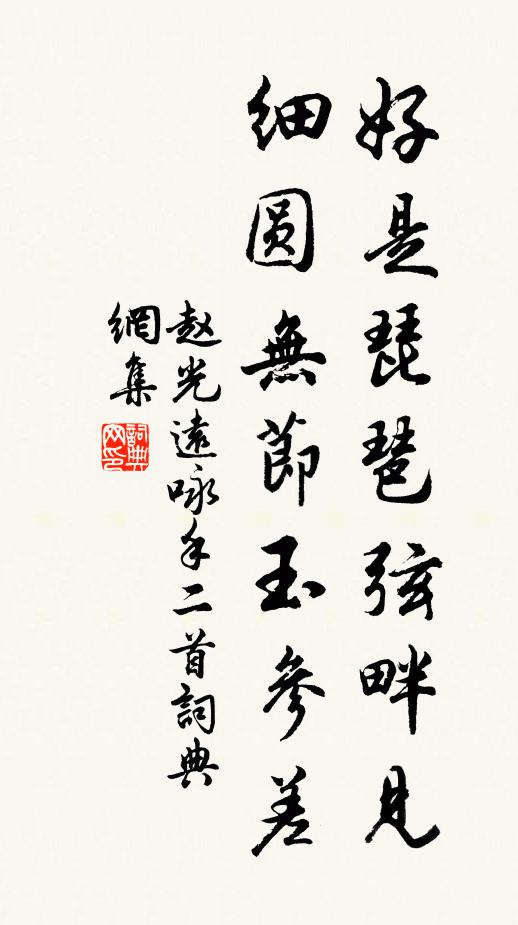 好是琵琶弦畔見
细圆無節玉參差
赵光遠咏手二首詞典
網集
詞典網印